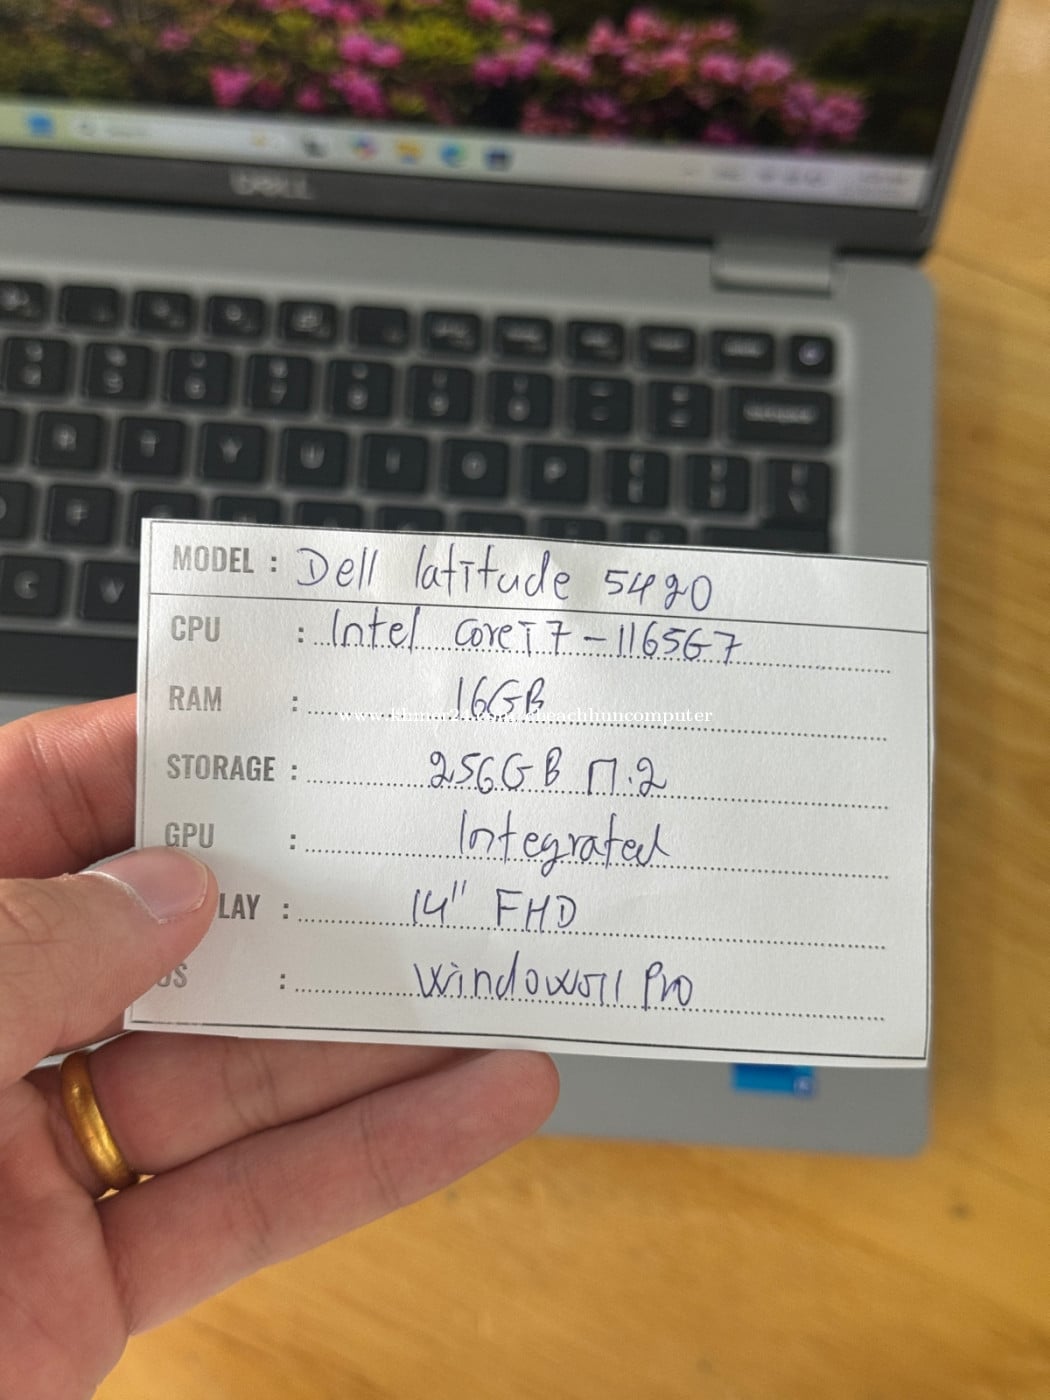 DELL
MODEL : Dell latitude 5420
CPU : Intel core i7-1165G7
RAM : 16GB
STORAGE : 256GB M.2
GPU : Integrated
LAY : 14" FHD
OS : Windows11 Pro